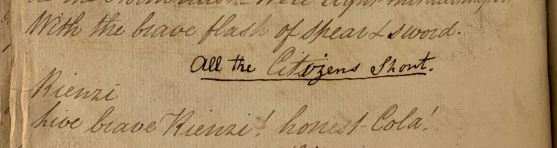 With the brave flash of spear & sword.
All the Citizens Shout.
Rienzi
Live brave Rienzi! honest Cola!